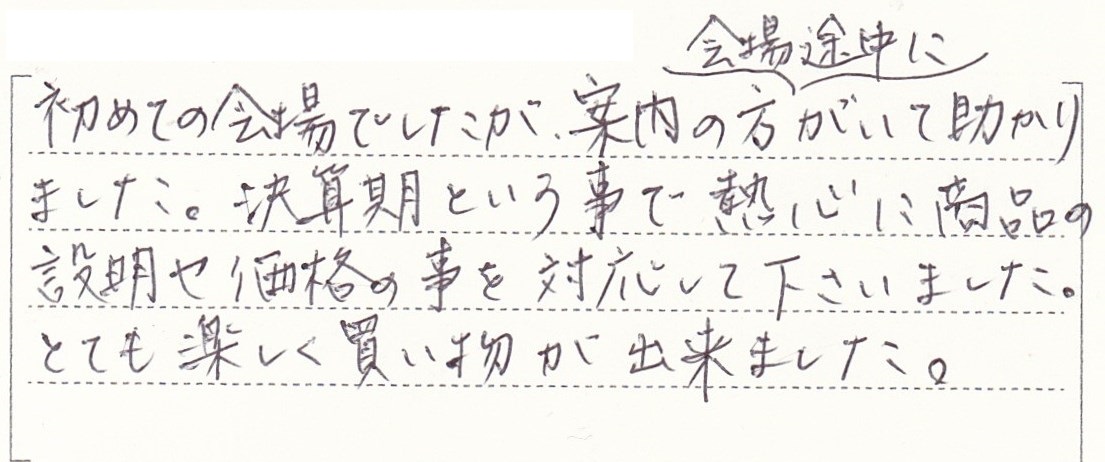 会場途中に
初めての会場でしたが、案内の方がいて助かり
ました。決算期という事で熱心に商品の
設明や価格の事を対応して下さいました。
とても楽しく買い物が出来ました。